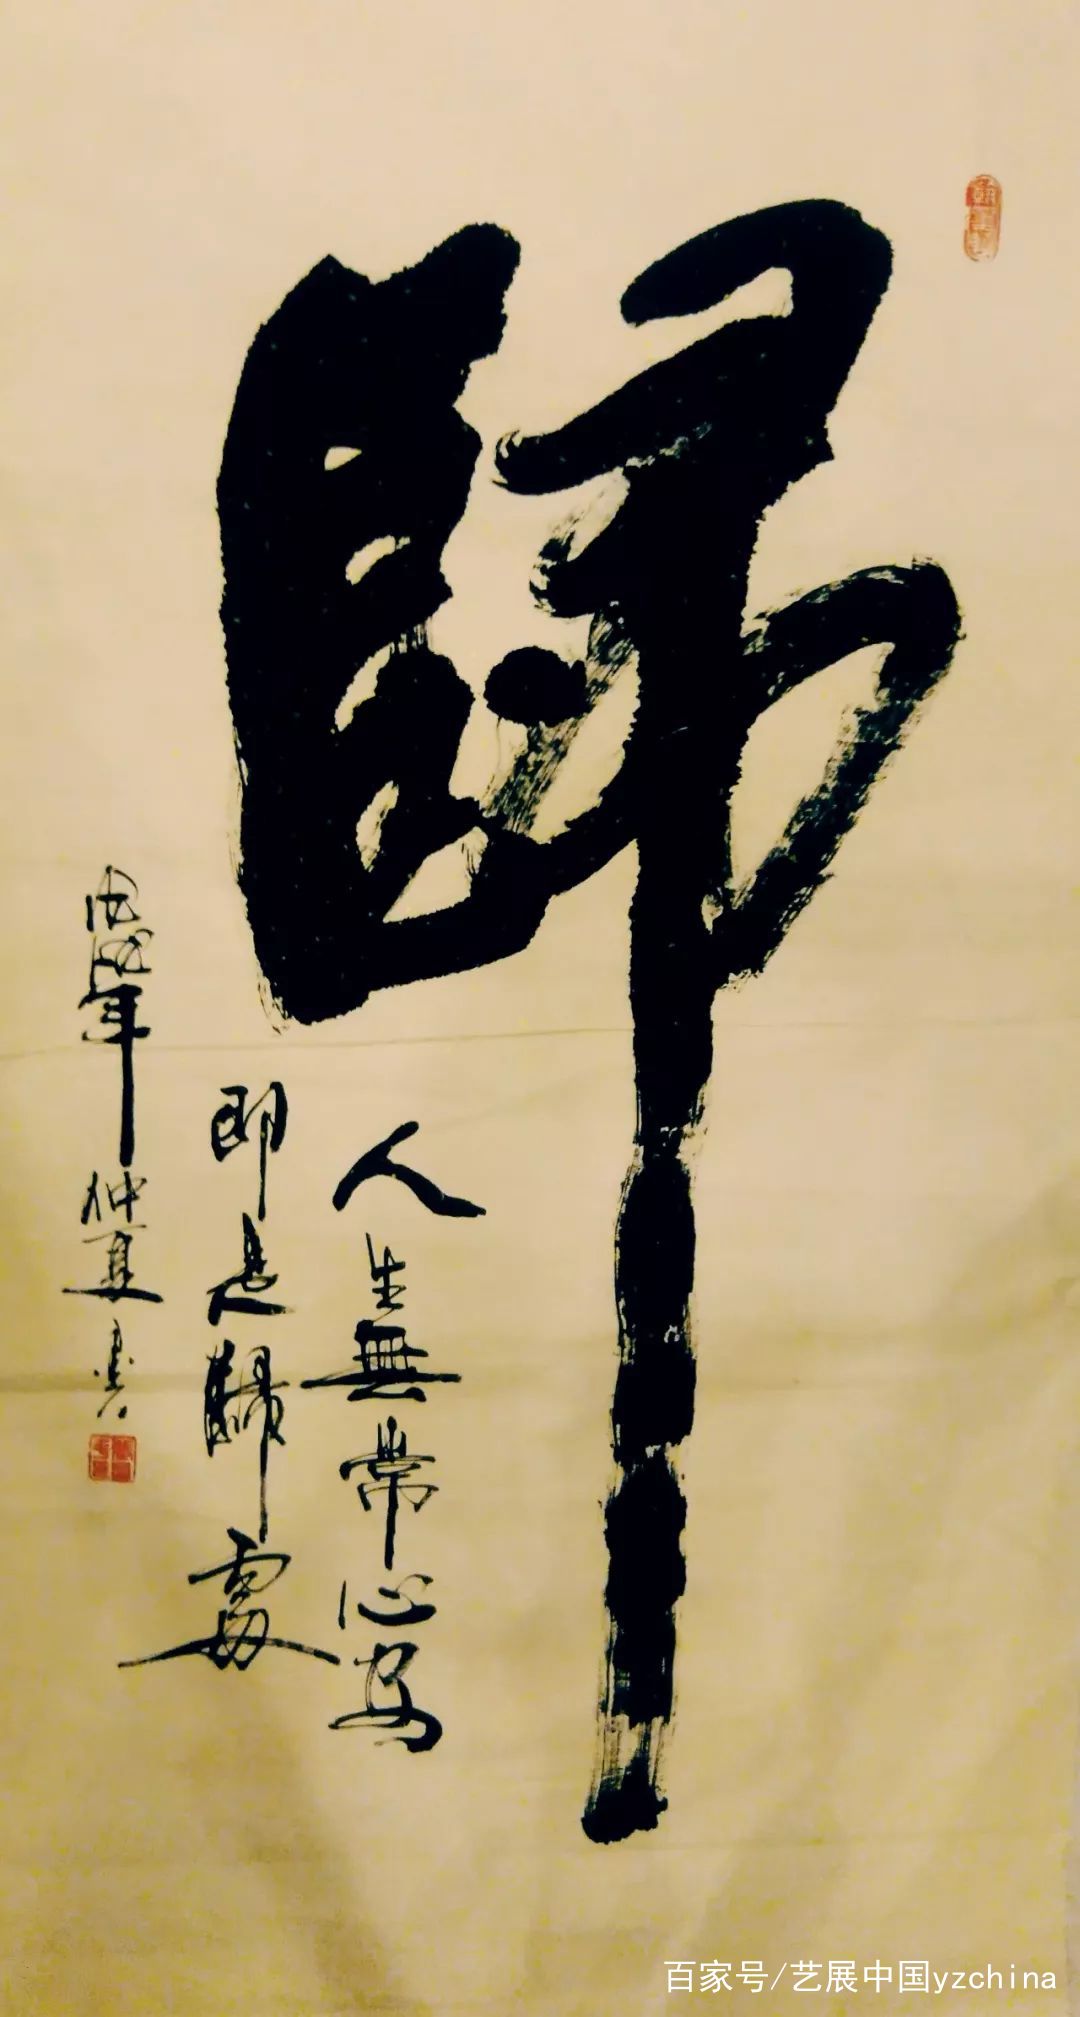 歸
人生無常心安
即是歸處
戊戌年仲夏
百家号/艺展中国yzchina